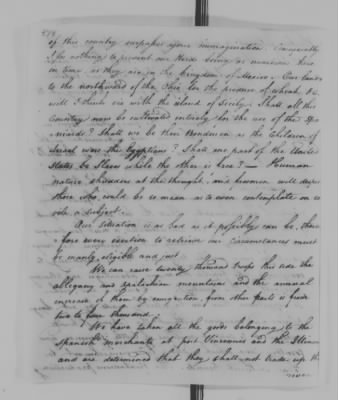 of this country surpases your immagination. Consequently
for nothing to prevent our Herds being as numerous here
in time, as they are in the Kingdom of Mexico. Our lands
to the northward of the Ohio, for the produce of wheat &c.
will I think vie with the island of Sicily. Shall all this
Country now be cultivated entirely for the use of the Spa-
niards? Shall we be their Bondsmen as the Children of
Israel were the Egyptians? Shall one part of the United
States be Slaves while the other is free? — Human
nature shudders at the thought, and freemen will despise
those who could be so mean as to even contemplate on so
vile a subject.
Our situation is as bad as it possibly can be, there-
fore every exertion to retrieve our circumstances must
be manly, eligible and just
We can raise twenty thousand troops this side the
Allegany and Apalachian mountains and the annual
increase of them by emigration, from other parts is from
two to four thousand.
We have taken all the goods belonging to the
Spanish merchants at post Vincennes and the Illinois
and are determined that they shall not trade up the
river